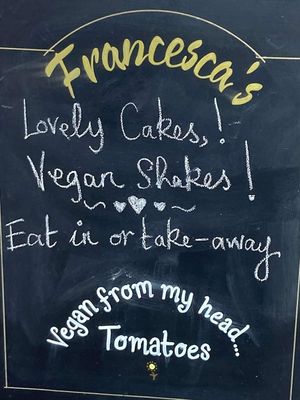 Francesca's
Lovely Cakes,!
Vegan Shakes!
Eat in or take-away
Vegan from my head...
Tomatoes